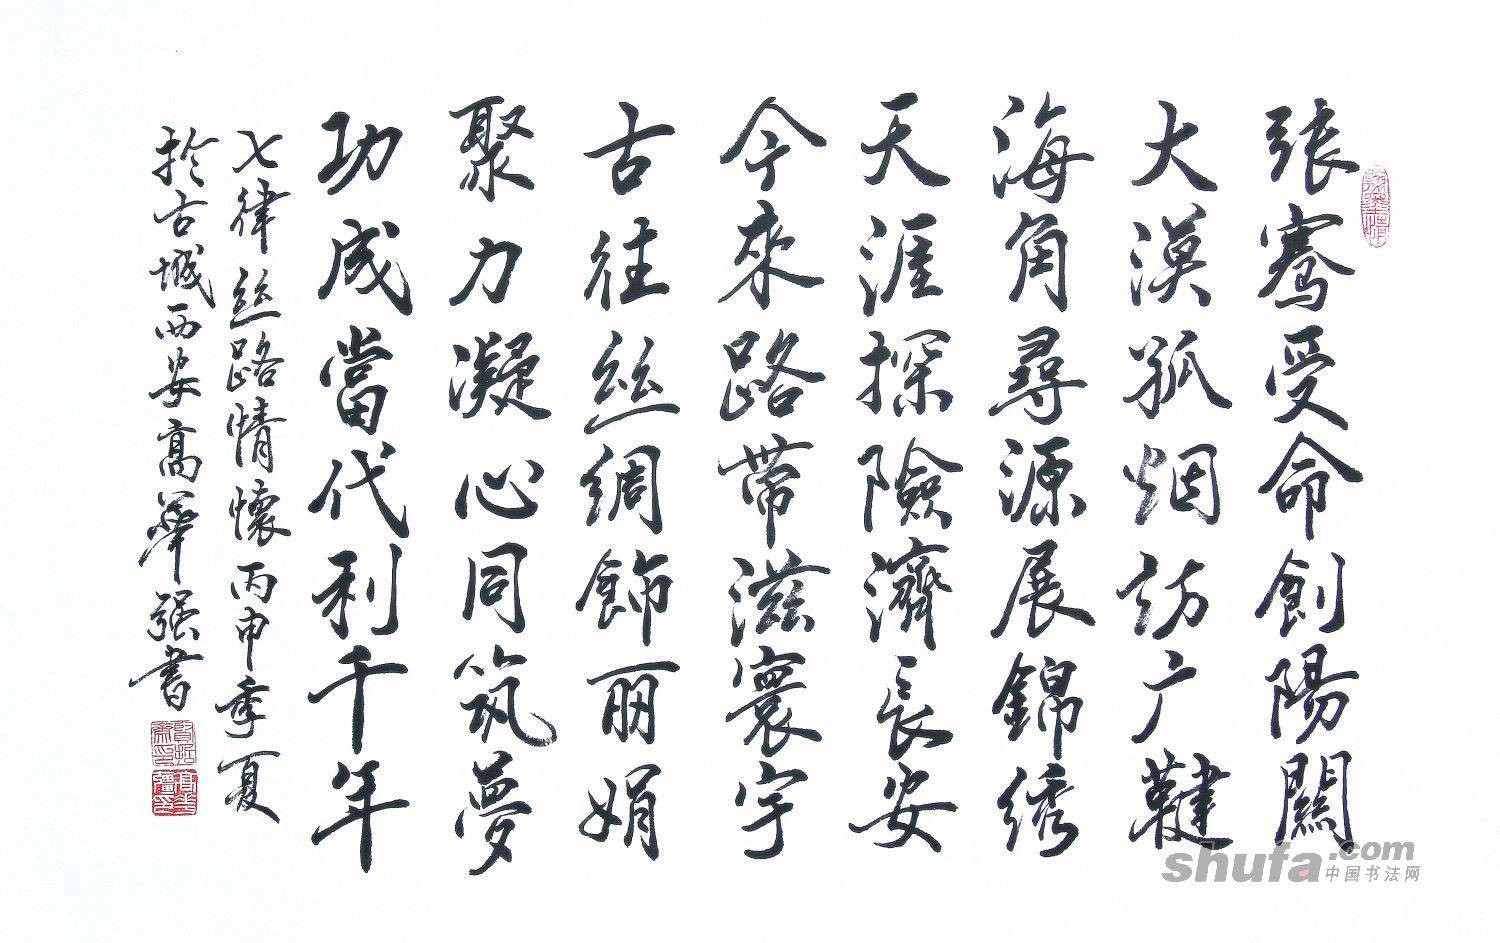 張騫受命創陽關
大漠孤烟訪广鞬
海角尋源展錦綉
天涯探險濟長安
今來路带滋寰宇
古往絲綢飾丽娟
聚力凝心同筑夢
功成當代利千年
七律絲路情懷丙申季夏
於古城西安高華强書
shufa.com
中国书法网